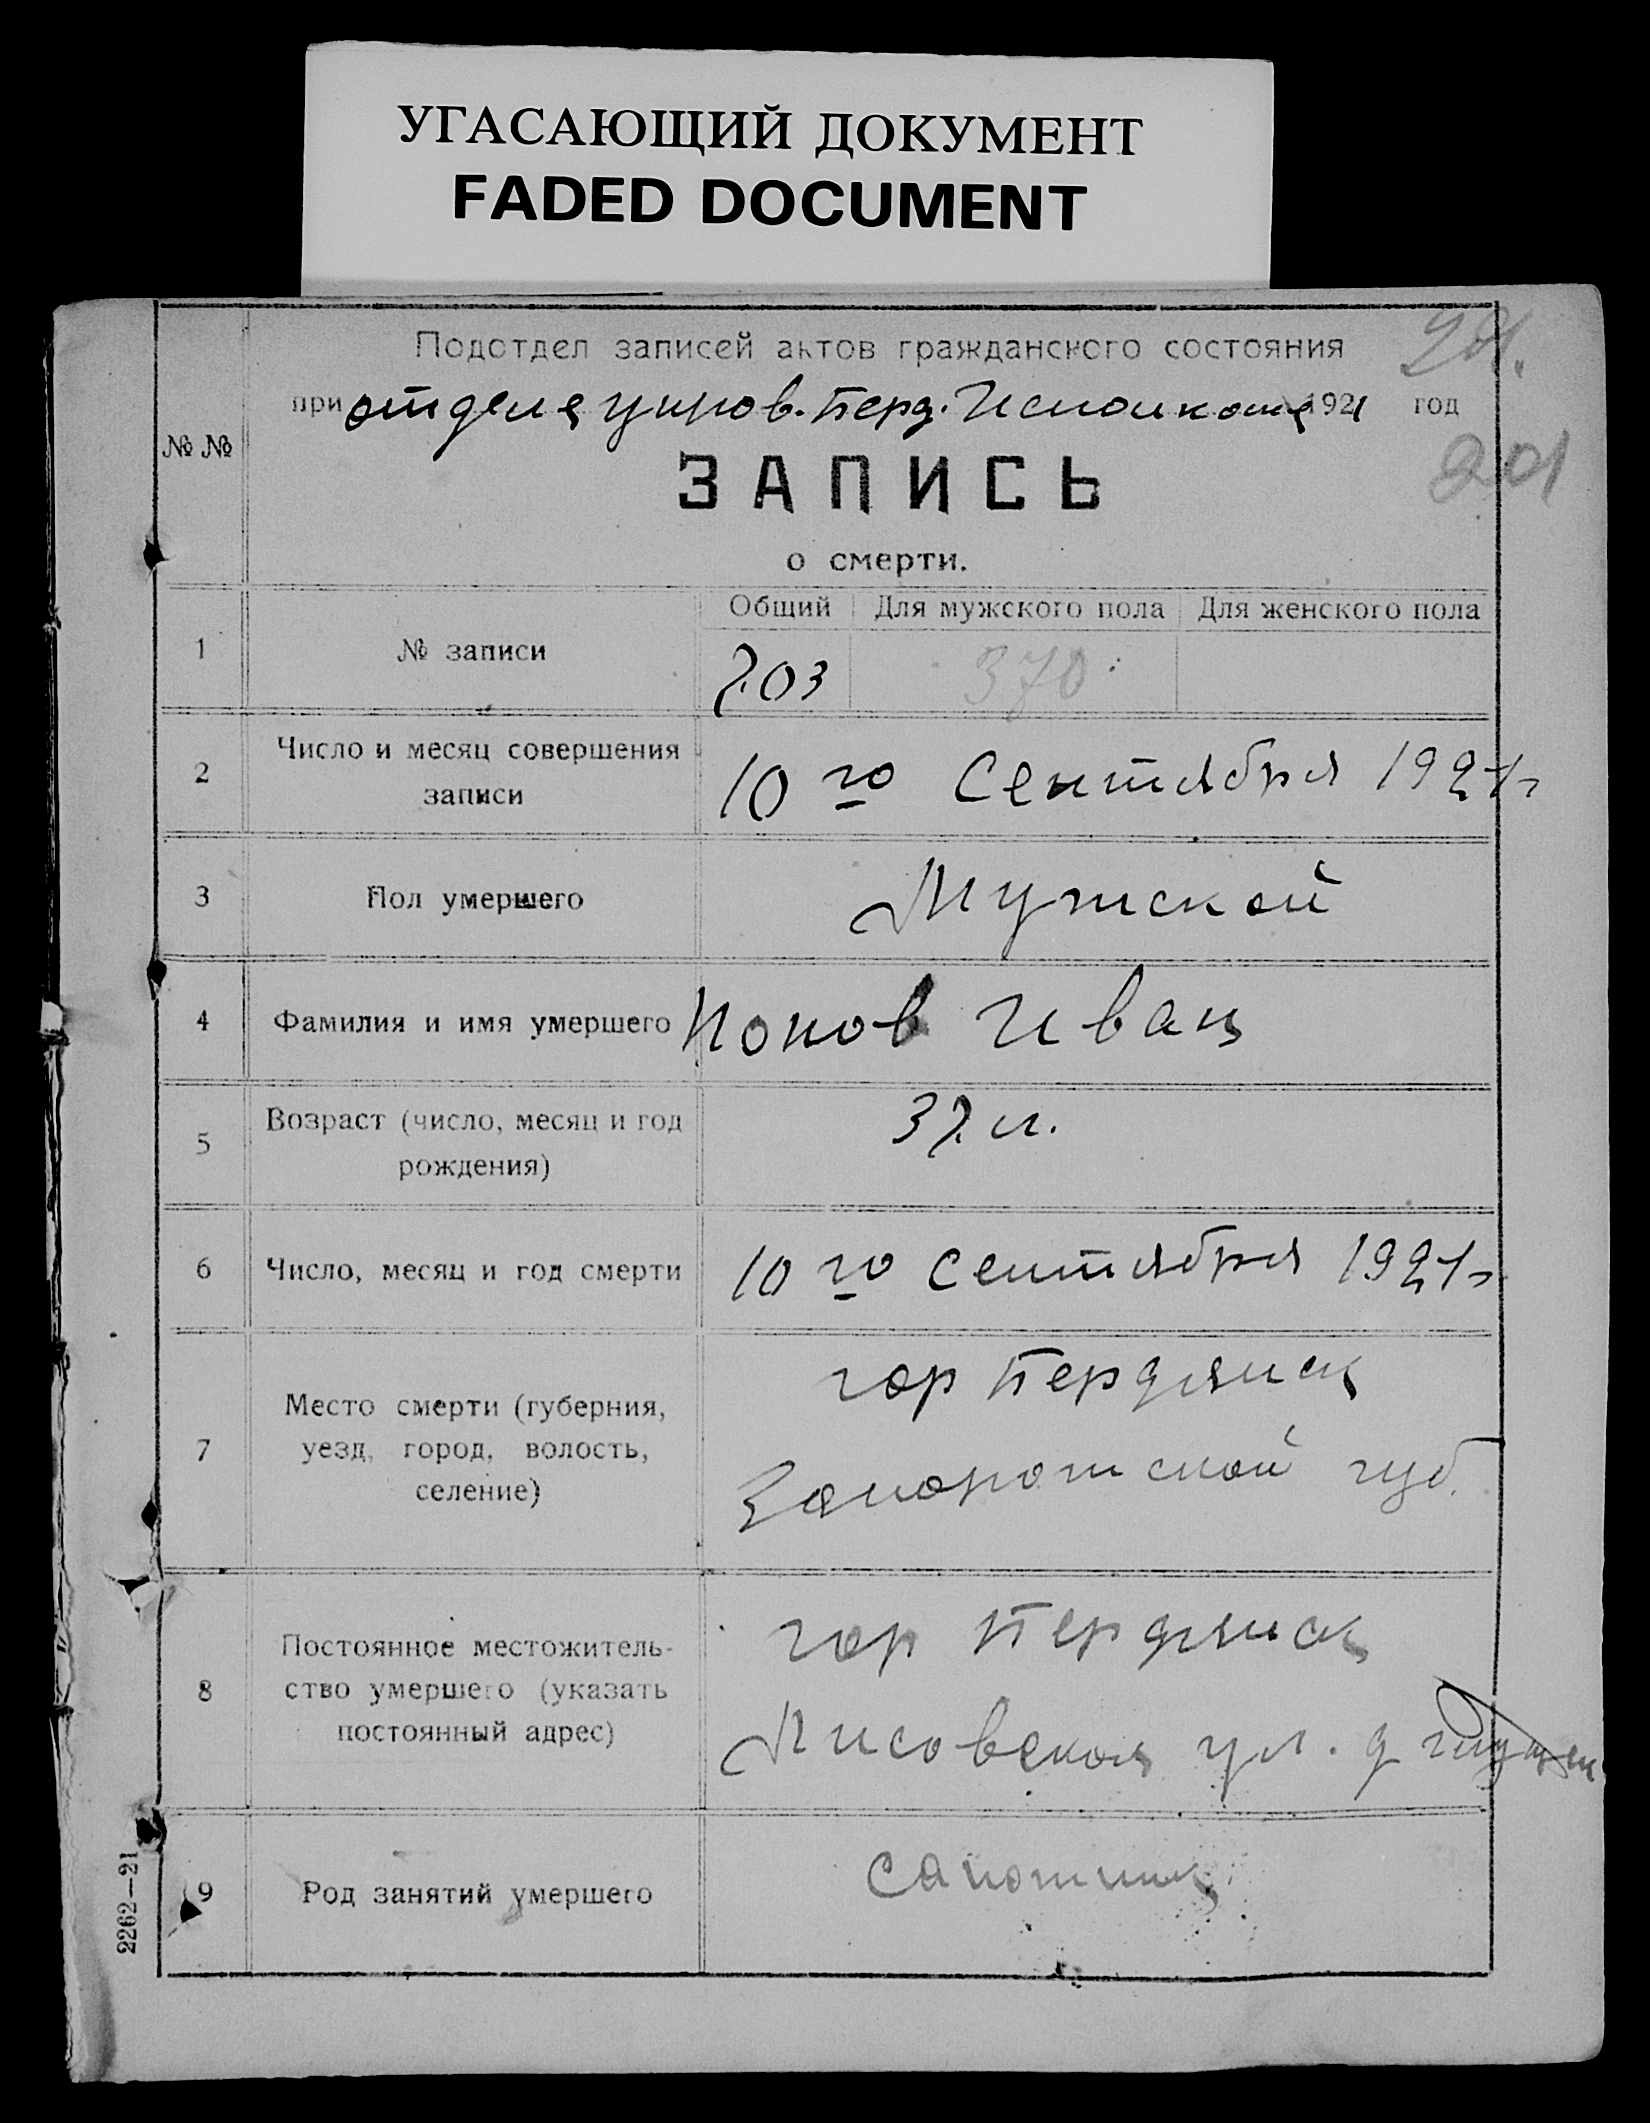 УГАСАЮЩИЙ ДОКУМЕНТ
FADED DOCUMENT
Подотдел записей актов гражданского состояния
при отделе управ. Берд. Исполкома 1921 год
201
№ №
ЗАПИСЬ
о смерти.
Общий Для мужского пола Для женского пола
1 № записи 703 370
2 Число и месяц совершения
записи
10го Сентября 1921г
3 Пол умершего Мужской
4 Фамилия и имя умершего Попов Иван
5 Возраст (число, месяц и год
рождения)
37 л.
6 Число, месяц и год смерти 10го Сентября 1921г
7 Место смерти (губерния,
уезд, город, волость,
селение)
гор Бердянск
Запорожской губ.
8 Постоянное местожитель-
ство умершего (указать
постоянный адрес)
гор Бердянск
ул. д
9 Род занятий умершего сапожник
2262—21